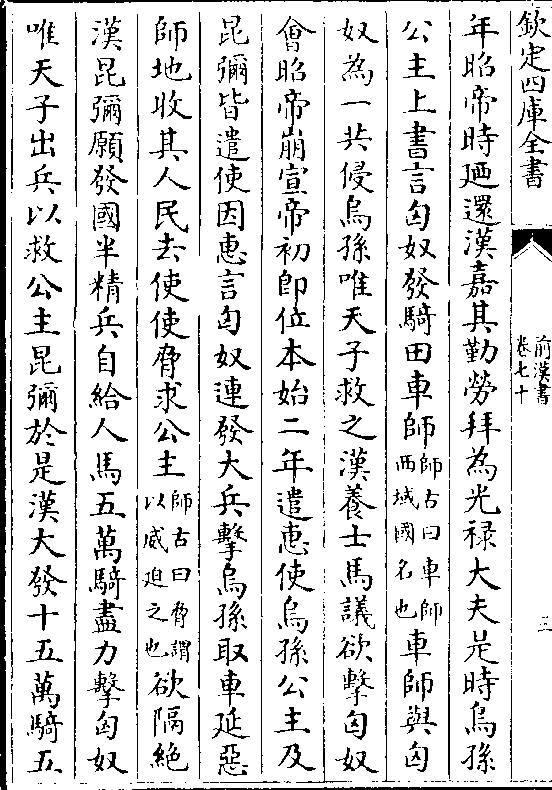 欽定四庫全書
前漢書
卷七十
三
年昭帝時廼還漢嘉其勤勞拜為光禄大夫是時烏孫
公主上書言匈奴發騎田車師師古曰車師西域國名也車師與匈
奴為一共侵烏孫唯天子救之漢養士馬議欲擊匈奴
會昭帝崩宣帝初即位本始二年遣惠使烏孫公主及
昆彌皆遣使因惠言匈奴連發大兵擊烏孫取車延惡
師地收其人民去使使脅求公主師古曰脅謂以威迫之也欲隔絶
漢昆彌願發國半精兵自給人馬五萬騎盡力擊匈奴
唯天子出兵以救公主昆彌於是漢大發十五萬騎五